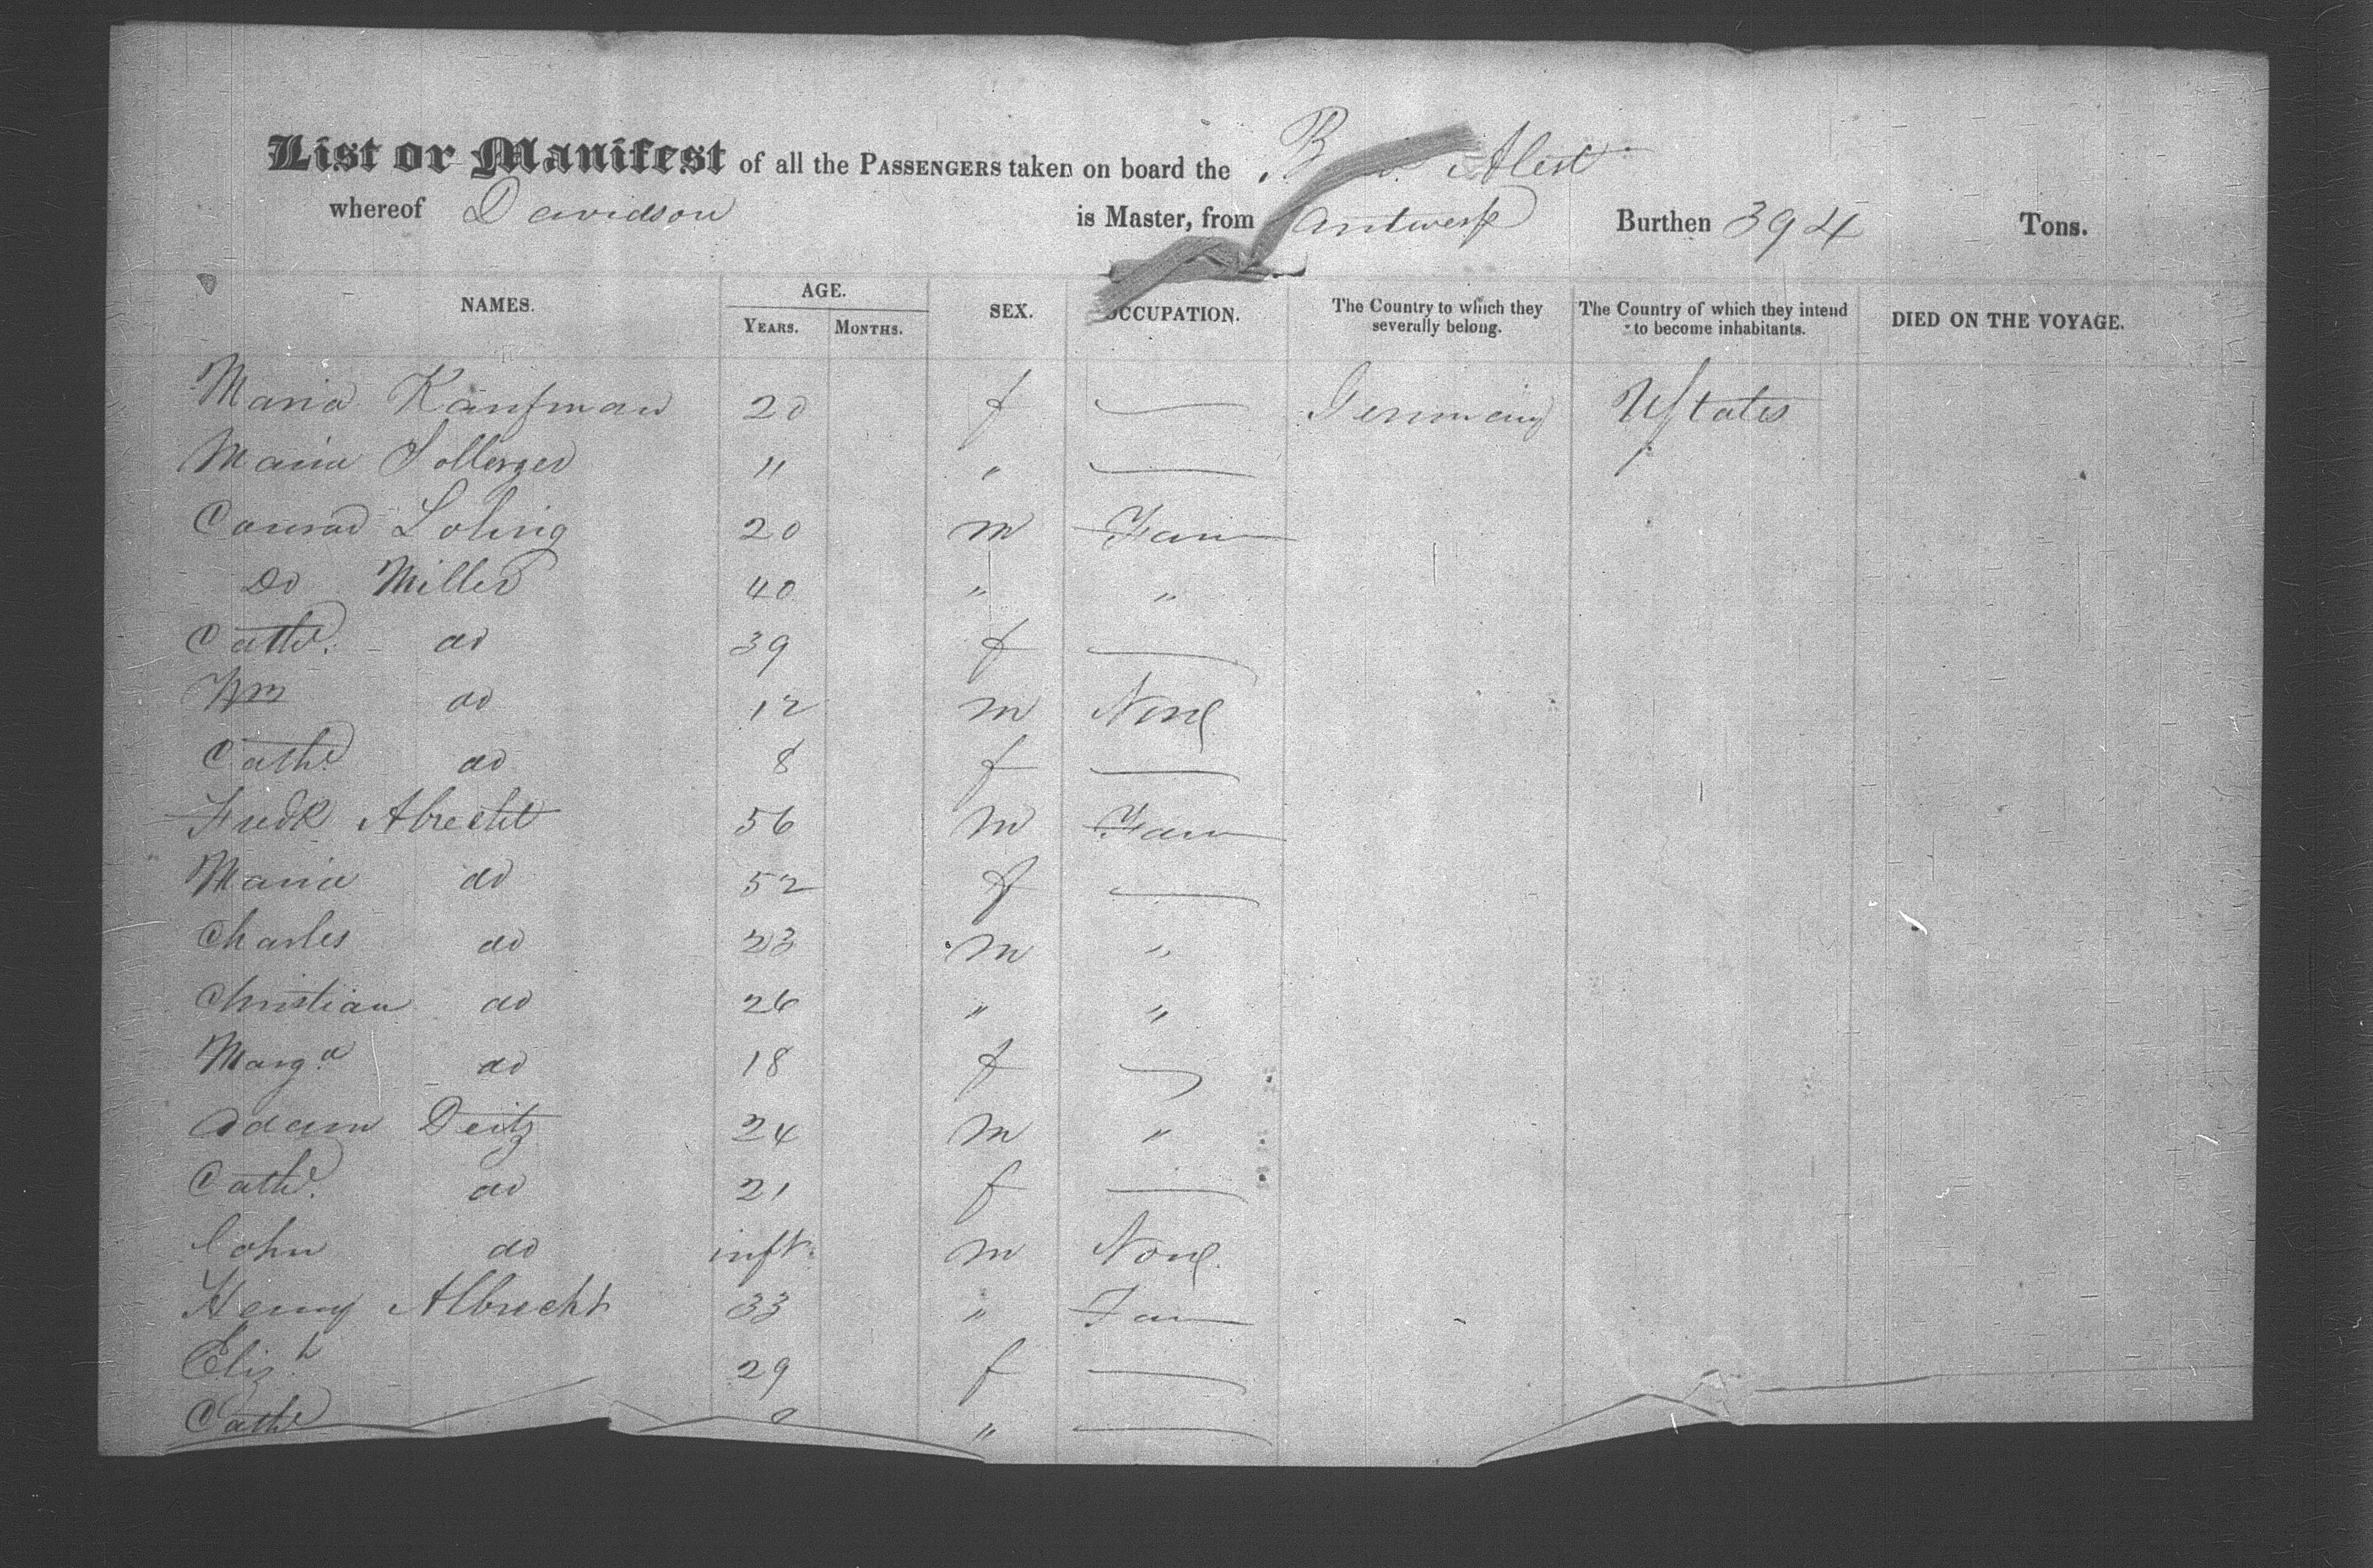 List or Manifest of all the PASSENGERS taken on board the Alert
whereof Davidson is Master, from Antwerp Burthen 394 Tons.
NAMES. AGE. YEARS. MONTHS. SEX. OCCUPATION. The Country to which they severally belong. The Country of which they intend to become inhabitants. DIED ON THE VOYAGE.
Maria Kaufman 20 f — Germany UStates
Maria " " —
Conrad 20 m Farm
Do Miller 40 " "
Cathe. do 39 f —
Wm do 12 m None
Cathe do 8 f —
Fredk Abrecht 56 m Farm
Maria do 52 f —
Charles do 23 m "
Christian do 26 " "
Marga do 18 f —
Adam Deitz 24 m "
Cathe. do 21 f —
John do inft. m None
Henry Albrecht 33 " Farm
Elizh 29 f —
Cathe " —